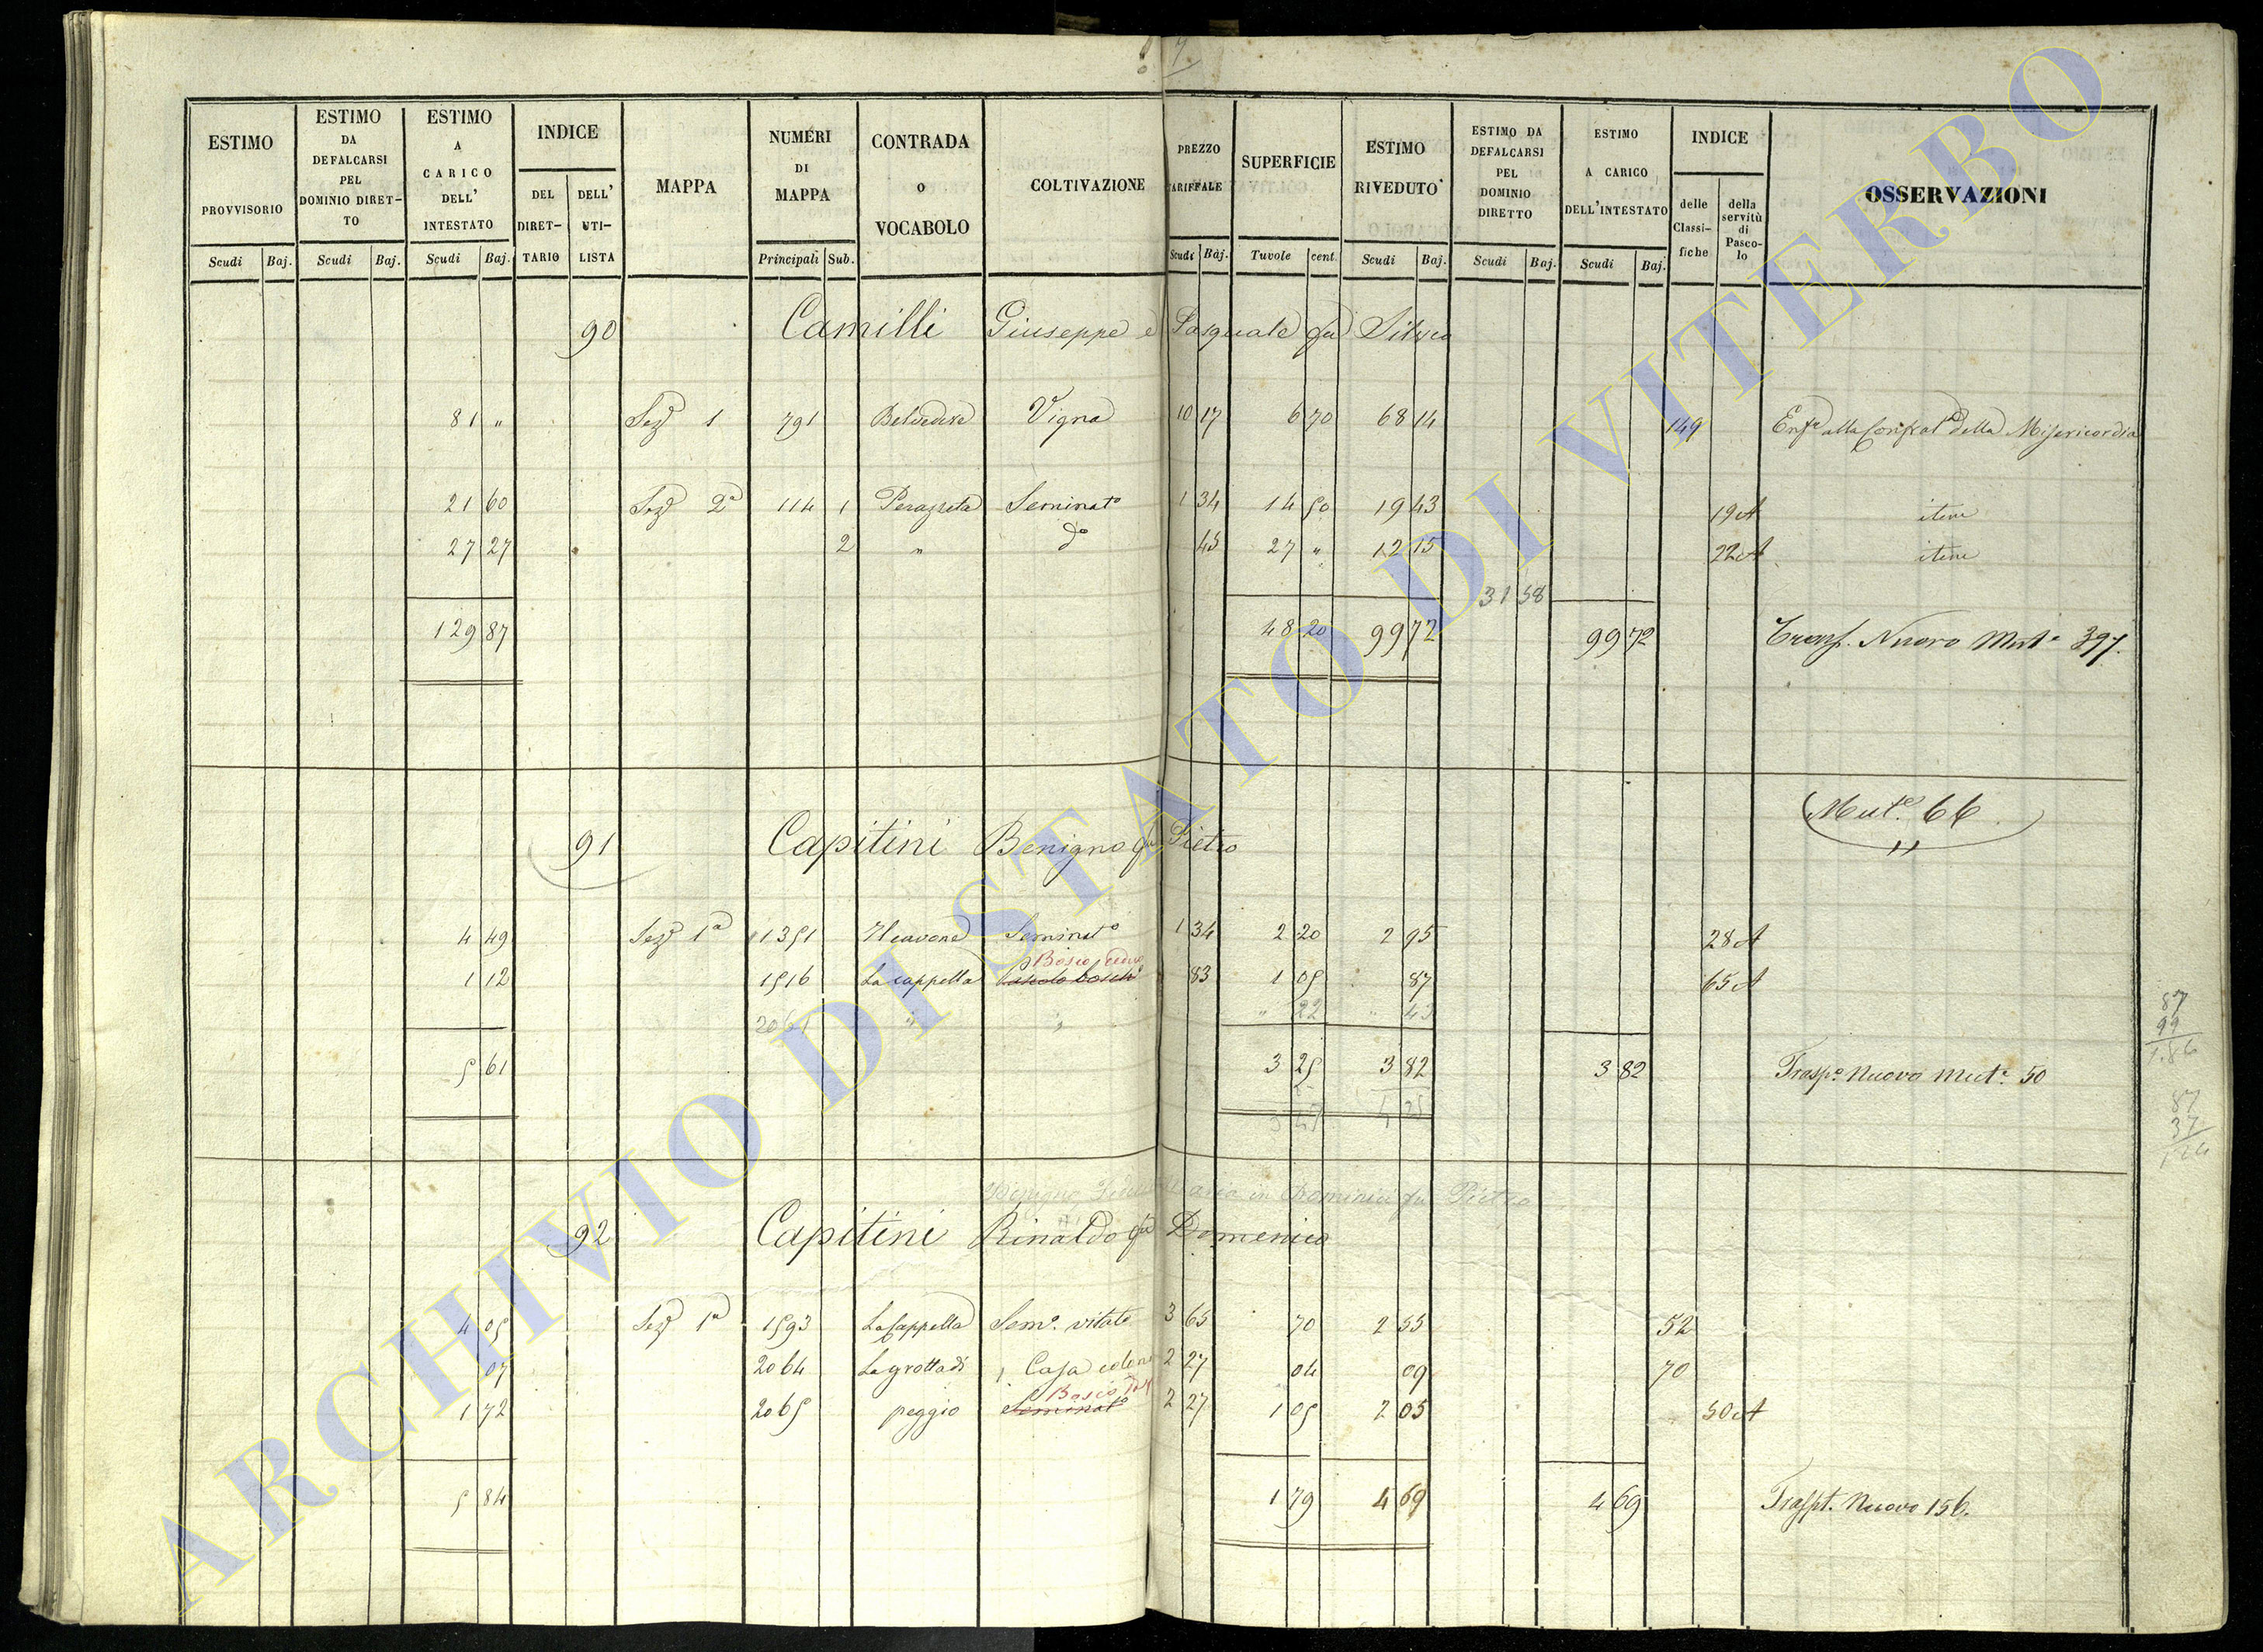 7
ESTIMO PROVVISORIO
ESTIMO DA DEFALCARSI PEL DOMINIO DIRETTO
ESTIMO A CARICO DELL' INTESTATO
INDICE
DEL DIRET-TARIO
DELL' UTI-LISTA
MAPPA
NUMERI DI MAPPA
CONTRADA O VOCABOLO
COLTIVAZIONE
PREZZO TARIFFALE
SUPERFICIE
ESTIMO RIVEDUTO
ESTIMO DA DEFALCARSI PEL DOMINIO DIRETTO
ESTIMO A CARICO DELL'INTESTATO
INDICE
delle Classi-fiche
della servitù di Pasco-lo
OSSERVAZIONI
Scudi Baj. Scudi Baj. Scudi Baj. Principali Sub. Scudi Baj. Tuvole cent. Scudi Baj. Scudi Baj. Scudi Baj.
90 Camilli Giuseppe e Pasquale fu
81 " Sez 1 791 Belvedere Vigna 10 17 6 70 68 14 149 Enf alla Confrat della Misericordia
21 60 Sez 2a 114 1 Seminato 1 34 14 50 19 43 19 A item
27 27 2 " do 45 27 " 12 15 22 A item
31 58
129 87 48 20 99 72 99 72 Trasp. Nuovo Mut. 397.
Mut. 66
91 Capitini Benigno fu Pietro
4 49 Sez 1a 1351 Il cavone Seminato 1 34 2 20 2 95 28 A
Bosco ceduo
1 12 1516 La cappella Pascolo bosch 83 1 05 87 65 A
2061 " " " 22 " 43
87
99
1.86
5 61 3 25 3 82 3 82 Trasp. Nuovo Mut. 50
3 47 4 25
87
37
Benigno in Domenico fu Pietro
92 Capitini Rinaldo fu Domenico
4 05 Sez 1a 1593 La Cappella Sem. vitato 3 65 70 2 55 52
07 2064 La grotta di Casa colona 2 27 04 09 70
Bosco
1 72 2065 peggio Seminato 2 27 1 05 2 05 50 A
5 84 1 79 4 69 4 69 Traspt. Nuovo 156.
ARCHIVIO DI STATO DI VITERBO